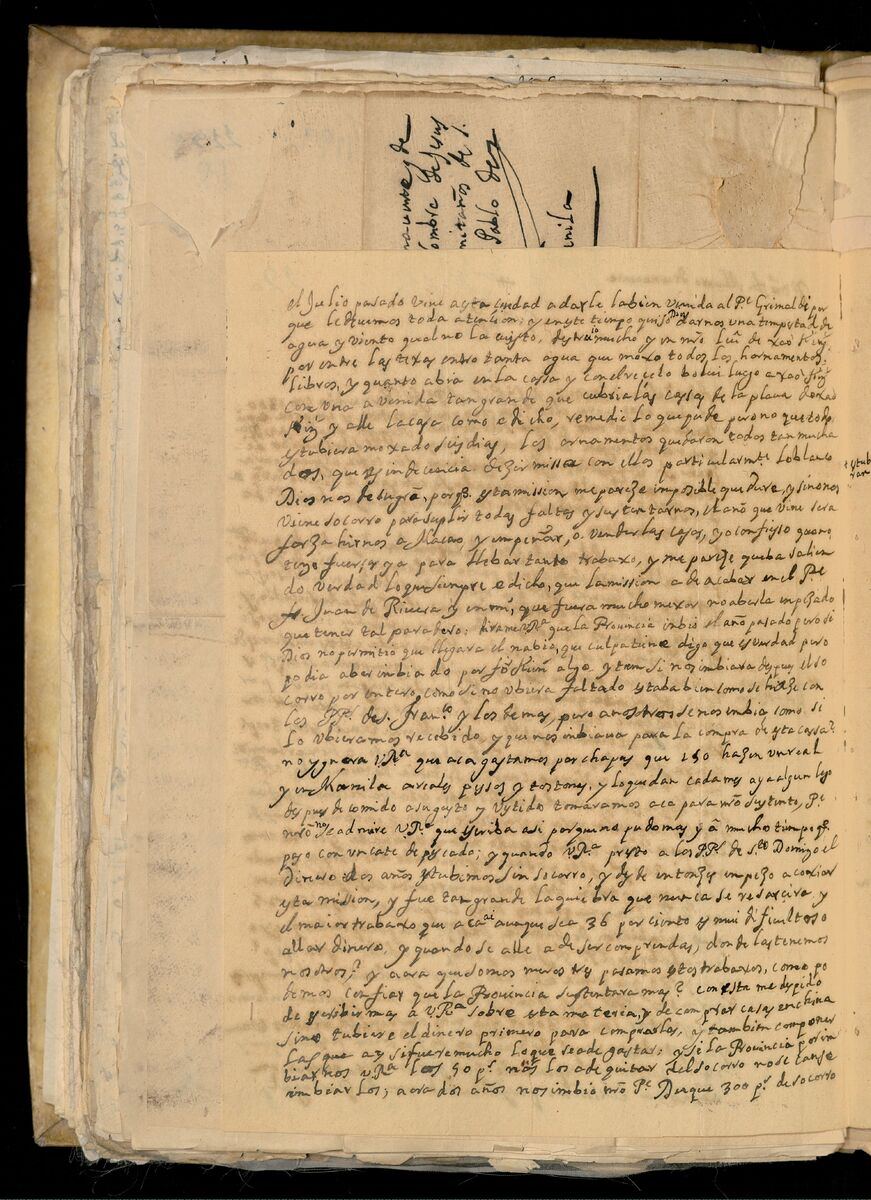 navente, y de
ombre de Jesus
mitaños de S.
Pablo de
anila
el Julio pasado vine a esta ciudad a darle la bien venida al Pe Grimaldi por
que le devemos toda atencion; y en este tiempo quiso Dios darnos una tempestad de
agua y viento qual no la e visto, destruio mucho y en nro
por entre las texas entro tanta agua que moxo todos los hornamentos,
libros, y quanto abia en la casa y con el recelo bolvi luego a xao
con una avenida tan grande que cubria las casas de la plaia de xao
y alle la casa como e dicho, remedie lo que pude pero no que todo
estubiera moxado seis dias, los ornamentos quedaron todos tan mancha
dos, que es indecencia dezir missa con ellos particularmte lo blanco
Dios nos de su gra, porq. esta mission me pareze imposible que dure, y sino nos
viene socorro para suplir todas faltas y sustentarnos, el año que viene sera
forza hirnos a Macao, y empeñar, o vender las casas, yo confieso que no
tengo fuerzas ya para llebar tanto trabaxo, y me pareze que ba salien
do verdad lo que siempre e dicho, que la mission a de acabar en el Pe
fr. Juan de Rivera y en mi, que fuera mucho mexor no aberla empezado
que tener tal paradero: dirame VRa que la Provincia inbio el año pasado pero si
Dios no permitio que llegara el nabio, que culpa tiene digo que es verdad pero
podia aber inbiado por algo y tam si nos imbiara despues el so
corro por entero, como si no ubiera faltado estaba bien como se hize con
los PPs de S. Franco y los demas, pero a nosotros se nos imbia como si
lo ubieramos recebido, y que nos imbiava para la compra desta cassa?
no ygnora VRa que aca gastamos por chapas que 150 hazen un real
y en Manila a reales pesos y tostones, y lo que dan cada mes aya algun lego
despues de comido a su gusto y vestido tomaramos aca para nro sustento, Pe
nro no se admire VRa que escriba asi porque no puedo mas y a mucho tiempo q.
paso con un cate de pescado; y quando VRa presto a los PPs de Sto Domigo el
dinero dos años estubimos sin socorro, y desde entonzes empezo a coxear
esta mision, y fue tan grande la quiebra que nunca se resarcira y
el maior trabaxo que aca ai aunque sea 36 por ciento es mui dificultoso
allar dinero, y quando se alle a de ser con prendas, donde las tenemos
nosotros? y aora que somos meros tres pasamos estos trabaxos, como po
demos confiar que la Provincia sustentara mas? con esta me despido
de escribir mas a VRa sobre esta materia, y de comprar casas en china
sino tubiere el dinero primero para comprarlas, y tambien componer
las que ay si fuere mucho lo que se a de gastar; y si la Provincia por im
biarnos VRa los 50 ps. mas los a de quitar del socorro no se canse
imbiarlos; aora dos años nos imbio nro Pe Duque 300 ps. de socorro
estub